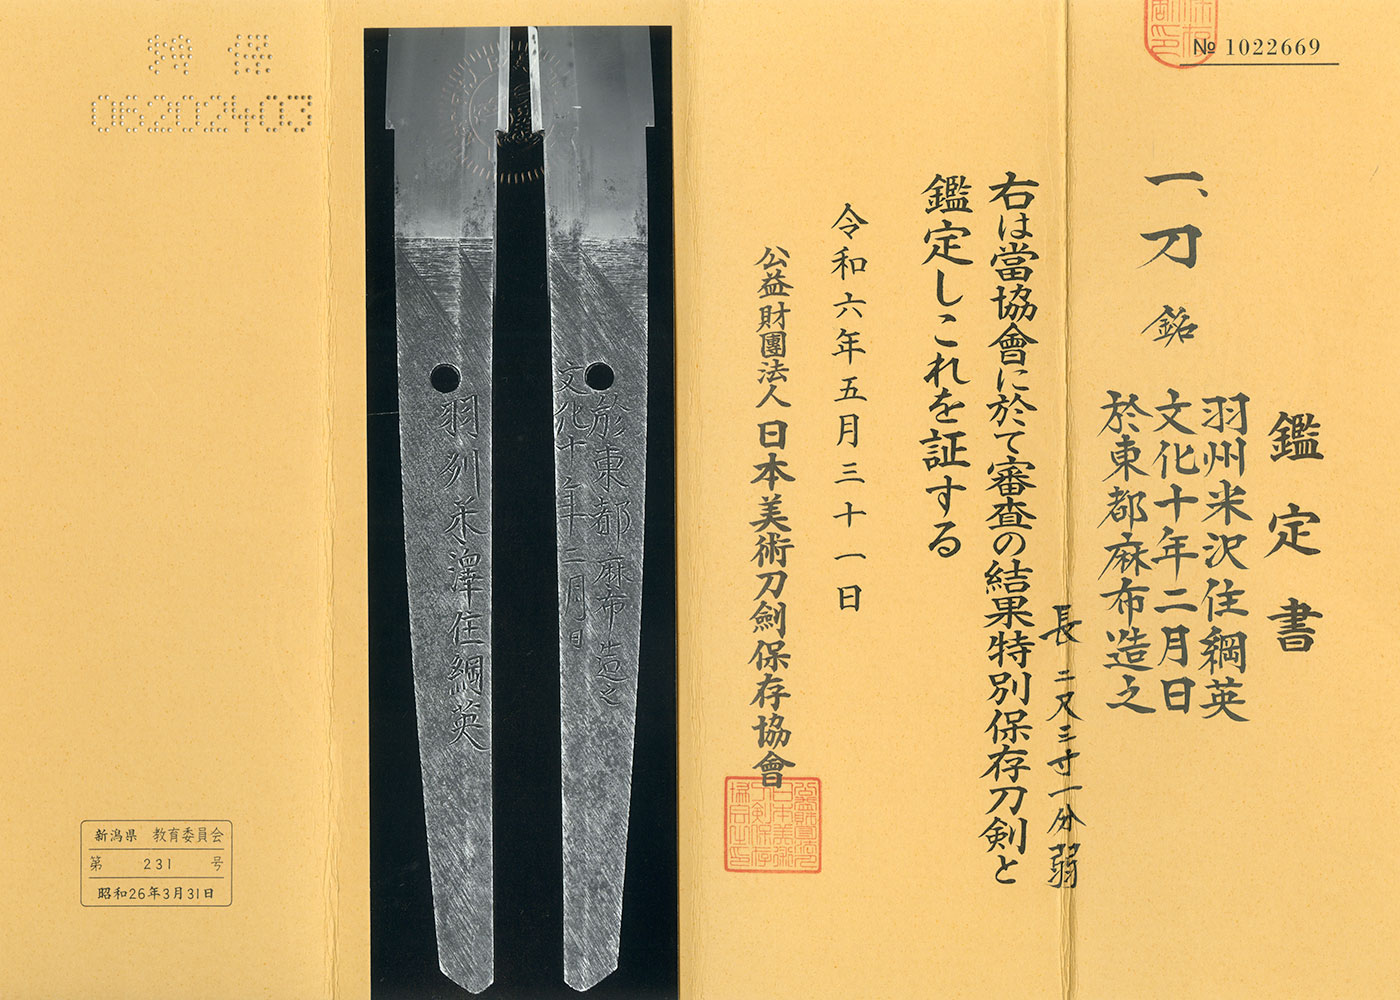 № 1022669
鑑定書
一、刀 銘
羽州米沢住綱英
文化十年二月日
於東都麻布造之
長 二尺三寸一分弱
右は當協會に於て審査の結果特別保存刀剣と
鑑定しこれを証する
令和六年五月三十一日
公益財團法人日本美術刀劍保存協會
於東都麻布造之
文化十年二月日
羽州米澤住綱英
特保
06202403
新潟県 教育委員会
第 231 号
昭和26年3月31日